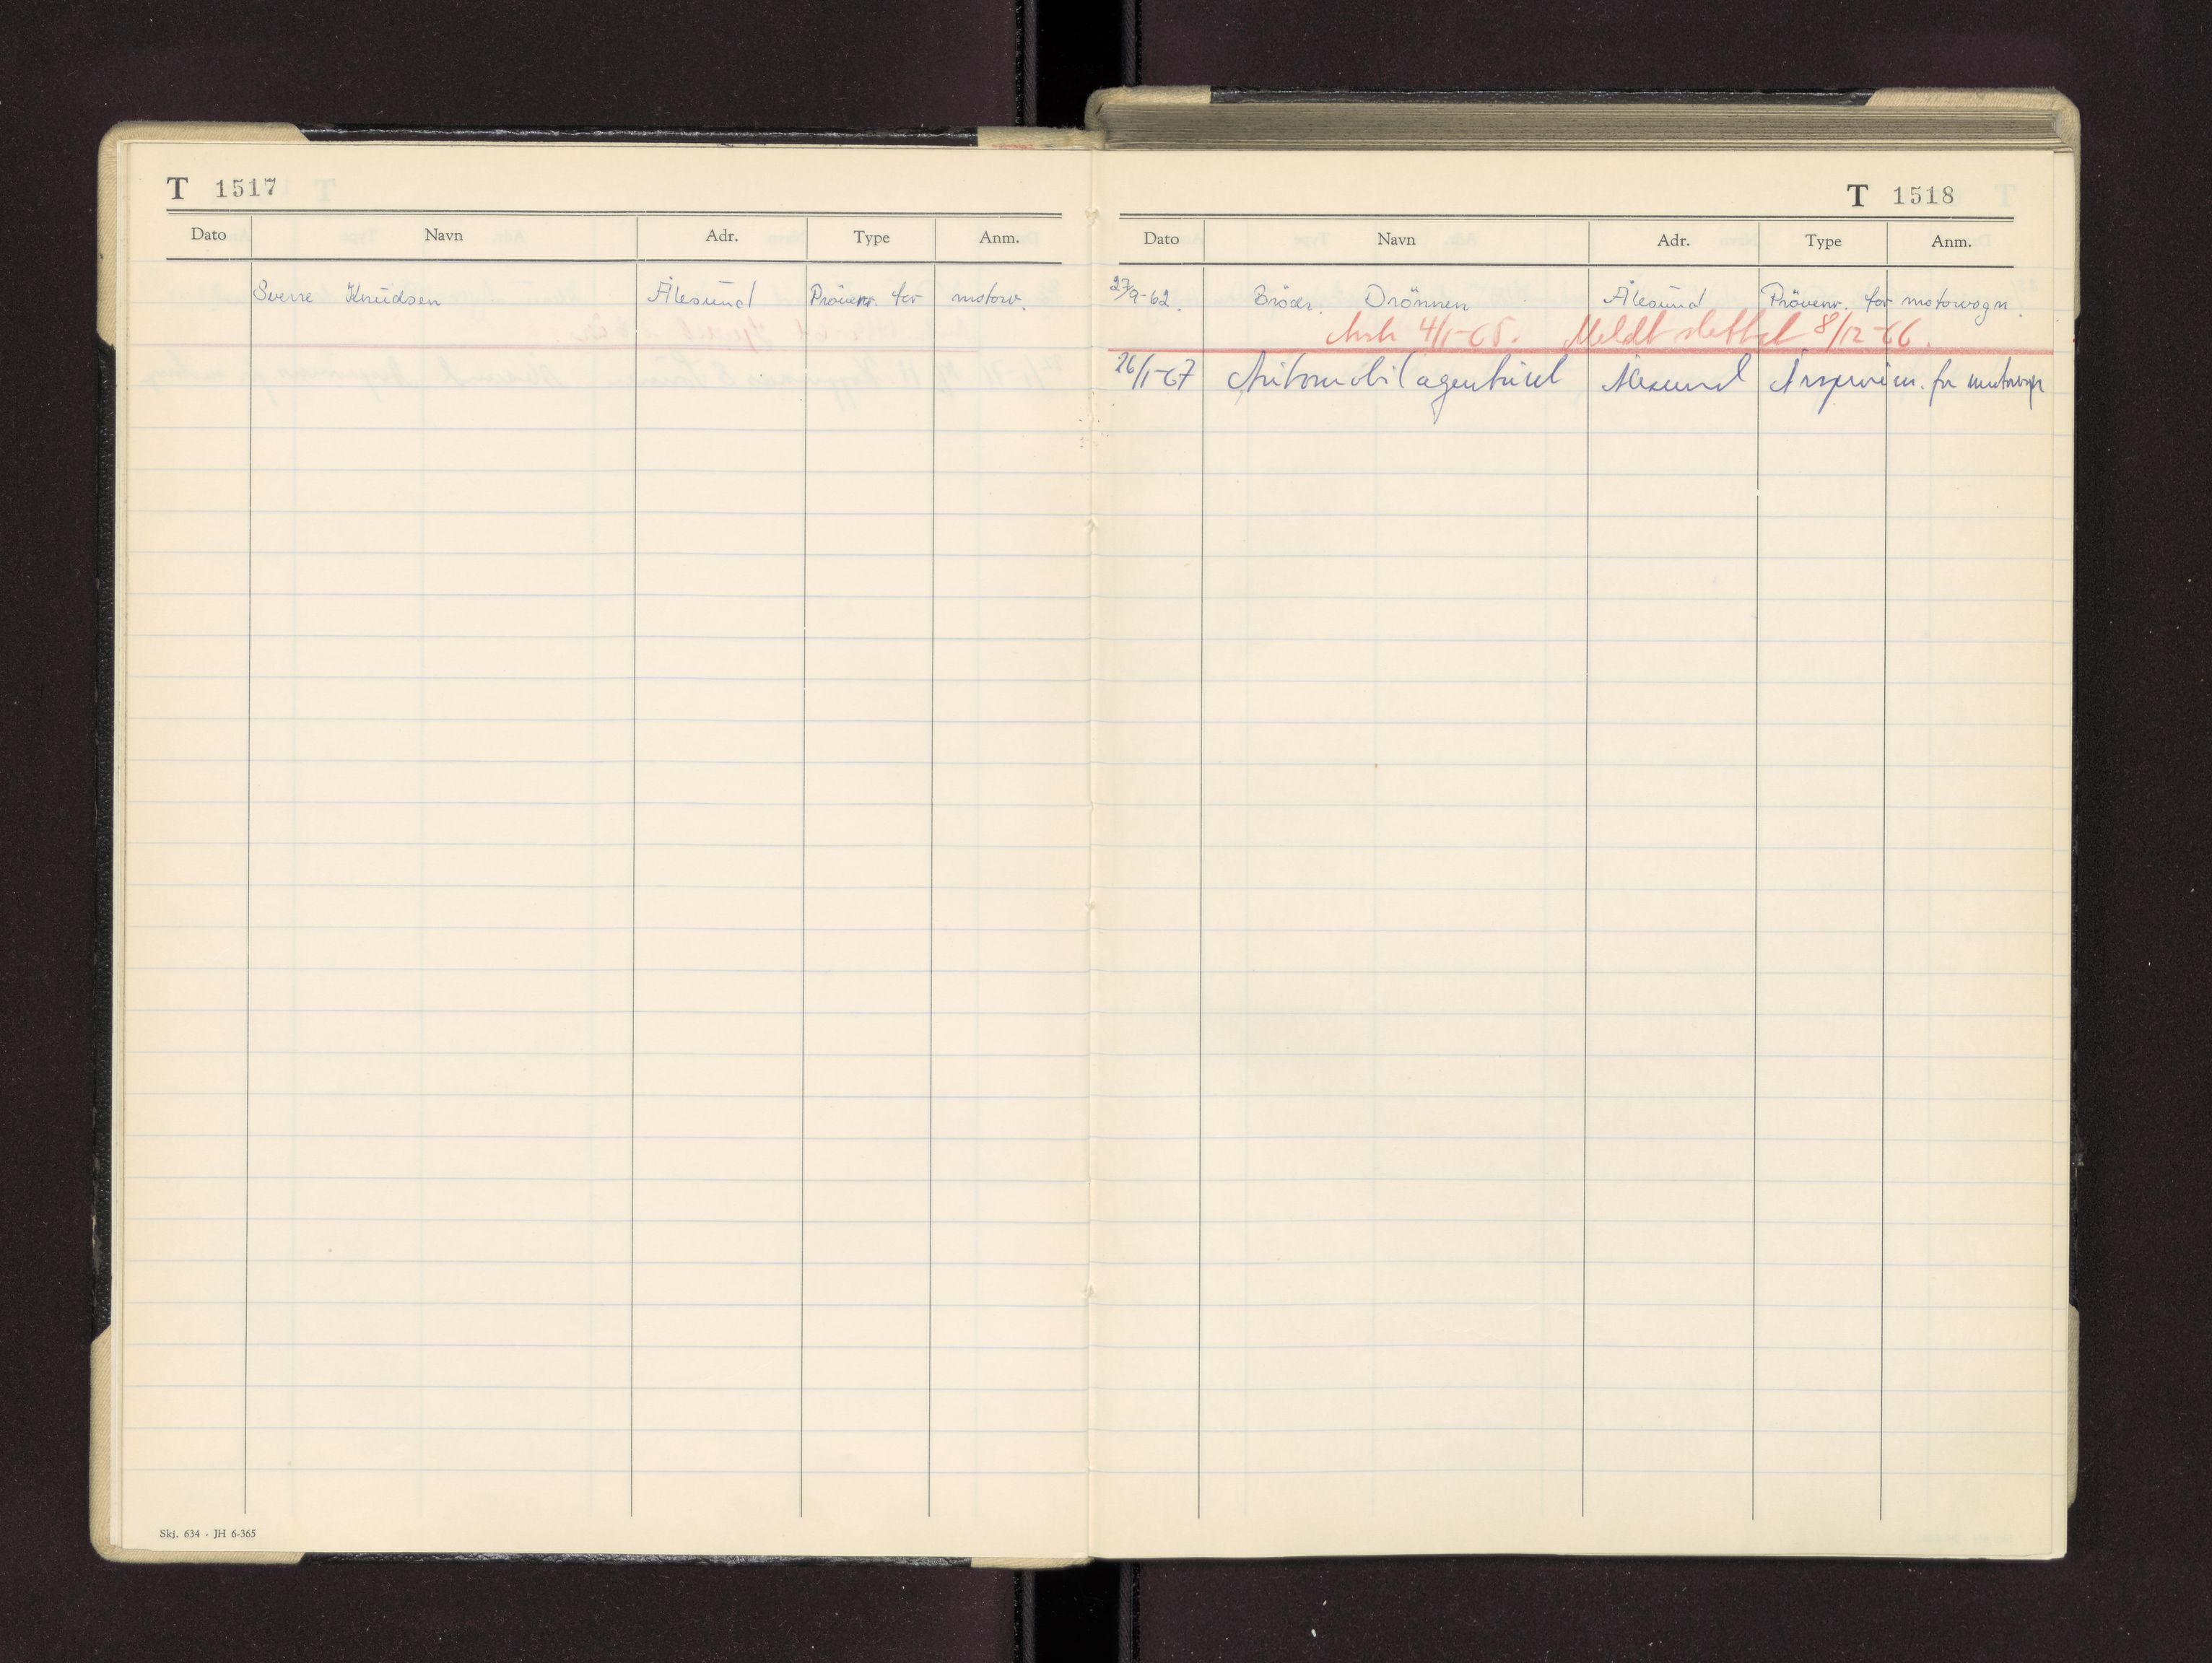 T 1517
Dato Navn Adr. Type Anm.
Sverre Knudsen Ålesund Prövenr. for motorv.
Skj. 634 - JH 6-365
T 1518
Dato Navn Adr. Type Anm.
27/9-62. Brödr. Drönnen Ålesund Prövenr. for motorvogn.
4/1-65. Meldt slettet 8/12-66.
26/1-67 Automobilagentur Ålesund for motorvogn